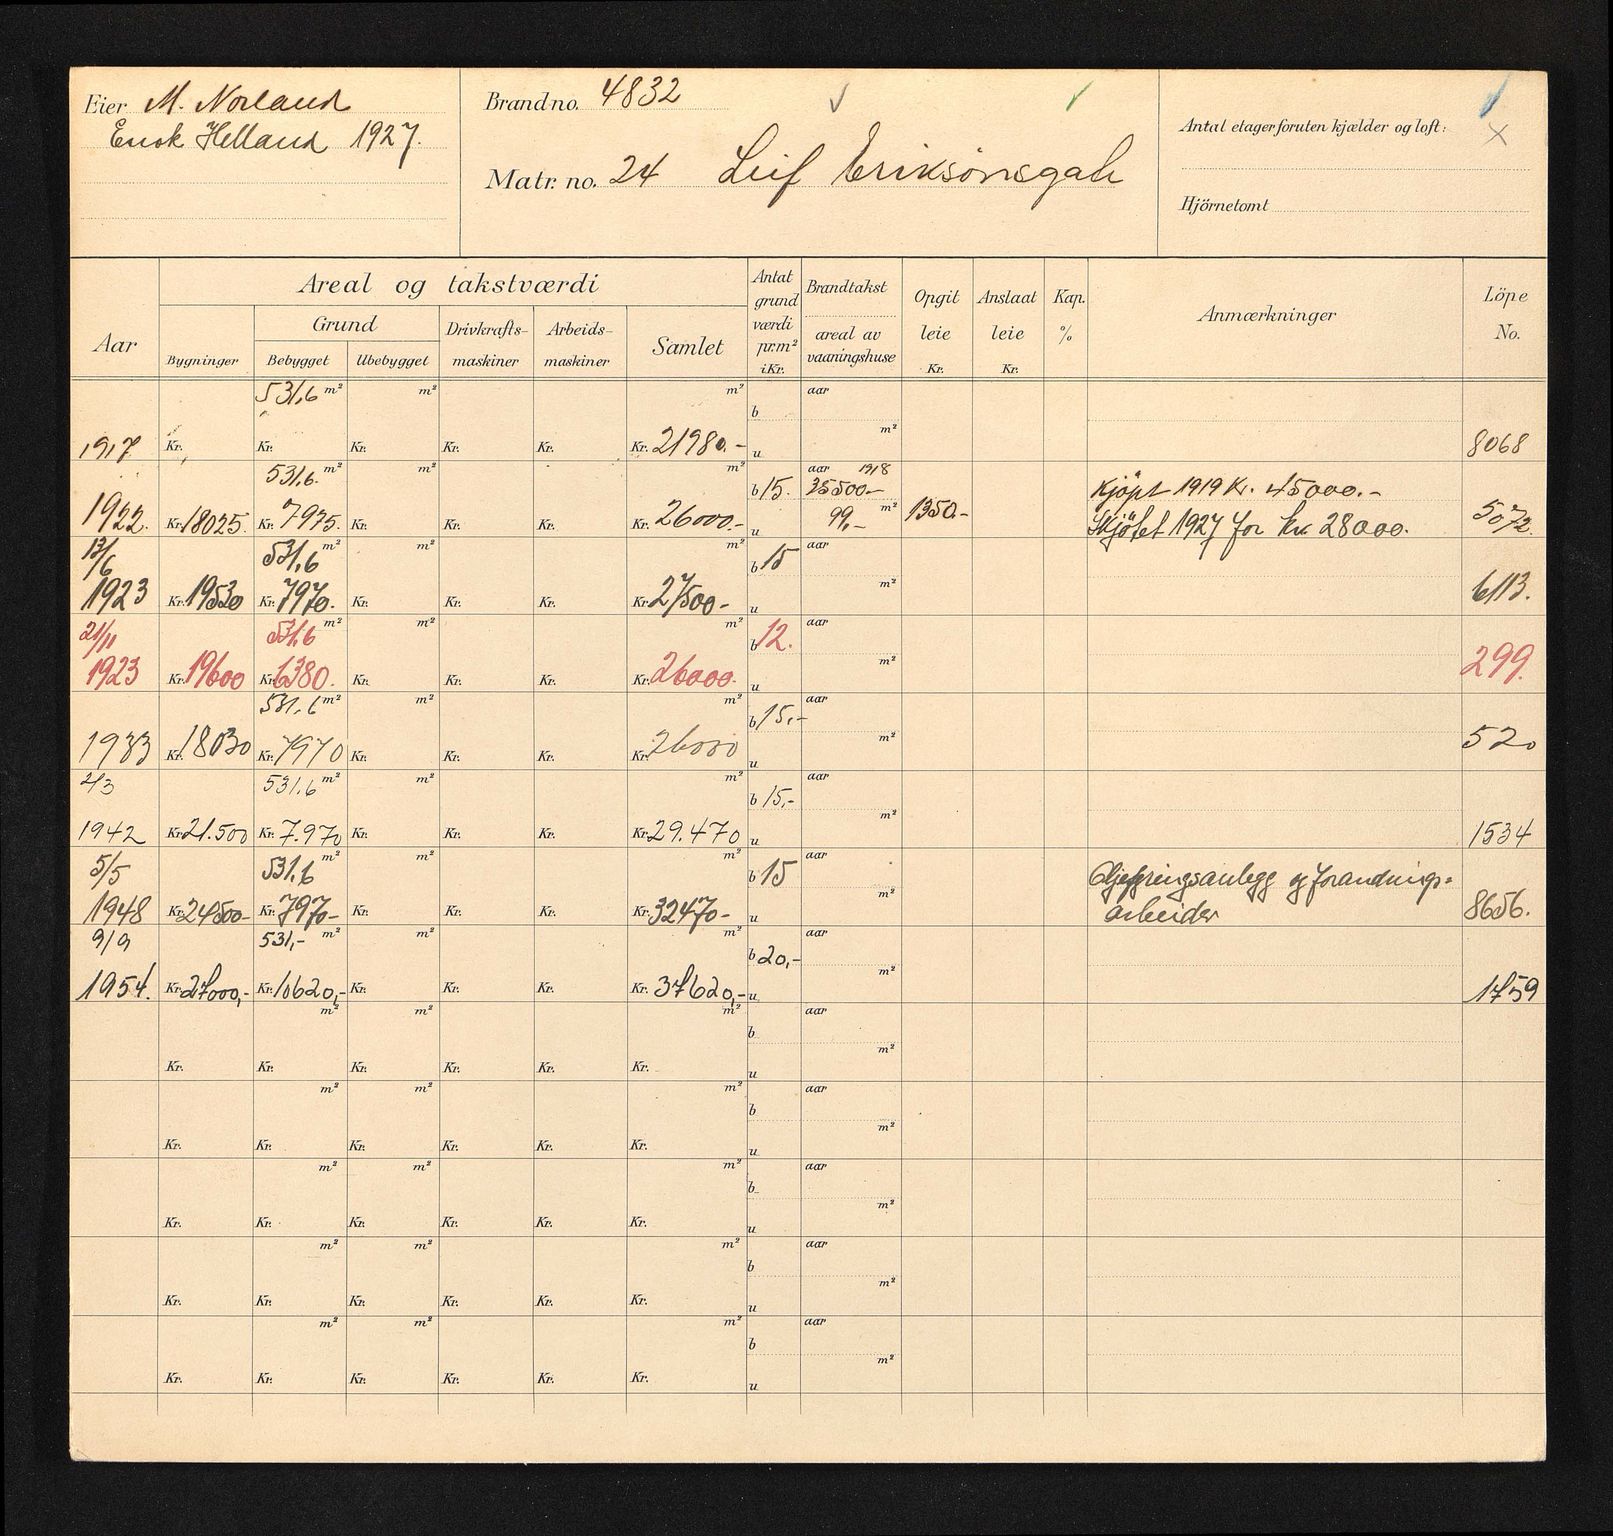 Eier M. Norland
Enok Helland 1927.
Brandno. 4832
Matr. no. 24 Leif Eriksönsgate
Antal etager foruten kjælder og loft:
Hjörnetomt
Aar
Areal og takstværdi
Grund
Bygninger
Bebygget
Ubebygget
Drivkrafts-
maskiner
Arbeids-
maskiner
Samlet
Antat
grund
værdi
pr. m²
i Kr.
Brandtakst
areal av
vaaningshuse
Opgit
leie
Kr.
Anslaat
leie
Kr.
Kap.
%
Anmærkninger
Löpe
No.
531,6 m² m² m² b aar
1917 Kr. Kr. Kr. Kr. Kr. Kr. 21980.- u m² 8068
531,6 m² m² m² b 15. aar 1918 35500.- Kjöpt 1919 Kr. 45000.-
1922. Kr. 18025. Kr. 7975. Kr. Kr. Kr. Kr. 26000.- u 99,- m² 1350.- Skjötet 1927 for kr. 28000. 5072.
13/6 531,6 m² m² m² b 15 aar
1923 Kr. 19530 Kr. 7970. Kr. Kr. Kr. Kr. 27500- u m² 6113.
21/11 531,6 m² m² m² b 12. aar
1923 Kr. 19600 Kr. 6380. Kr. Kr. Kr. Kr. 26000. u m² 299.
531,6 m² m² m² b 15,- aar
1933 Kr. 18030 Kr. 7970 Kr. Kr. Kr. Kr. 26000 u m² 520
2/3 531.6 m² m² m² b 15,- aar
1942 Kr. 21.500 Kr. 7.970 Kr. Kr. Kr. Kr. 29.470 u m² 1534
5/5 531.6 m² m² m² b 15 aar Oljefyringsanlegg og forandrings-
1948 Kr. 24500- Kr. 7970- Kr. Kr. Kr. Kr. 32470- u m² arbeider 8656.
9/9 531,- m² m² m² b 20,- aar
1954. Kr. 27000,- Kr. 10620,- Kr. Kr. Kr. Kr. 37620,- u m² 1759
m² m² m² b aar
Kr. Kr. Kr. Kr. Kr. Kr. u m²
m² m² m² b aar
Kr. Kr. Kr. Kr. Kr. Kr. u m²
m² m² m² b aar
Kr. Kr. Kr. Kr. Kr. Kr. u m²
m² m² m² b aar
Kr. Kr. Kr. Kr. Kr. Kr. u m²
m² m² m² b aar
Kr. Kr. Kr. Kr. Kr. Kr. u m²